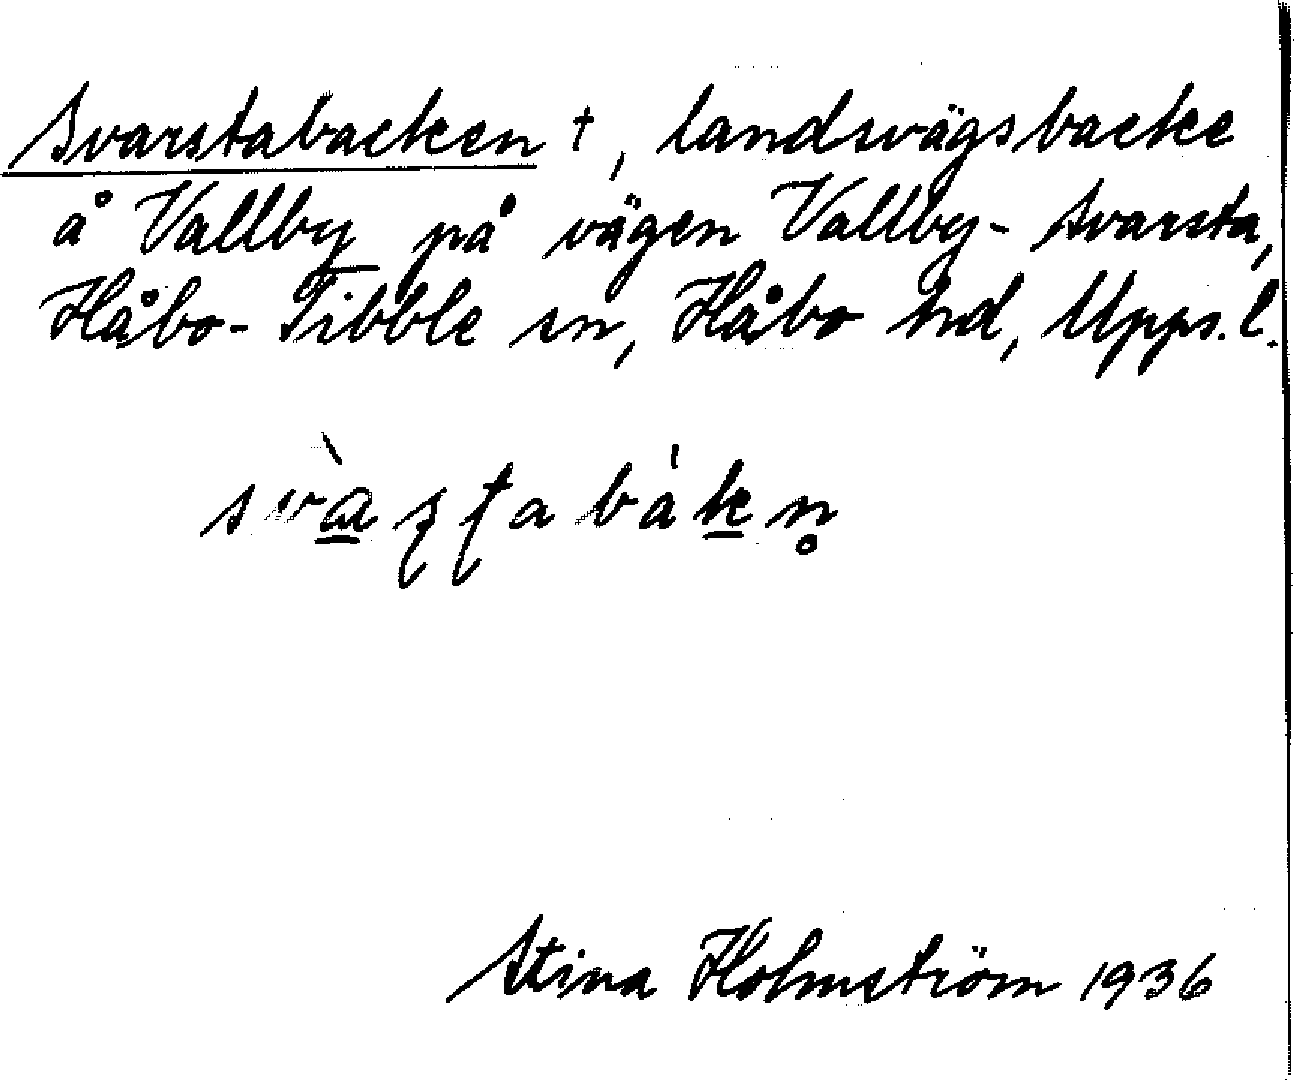 Svarstabacken †, landsvägsbacke
å Vallby på vägen Vallby - Svarsta,
Håbo-Tibble sn, Håbo hd, Upps. l.
svàʂʈabákn̥
Stina Holmström 1936